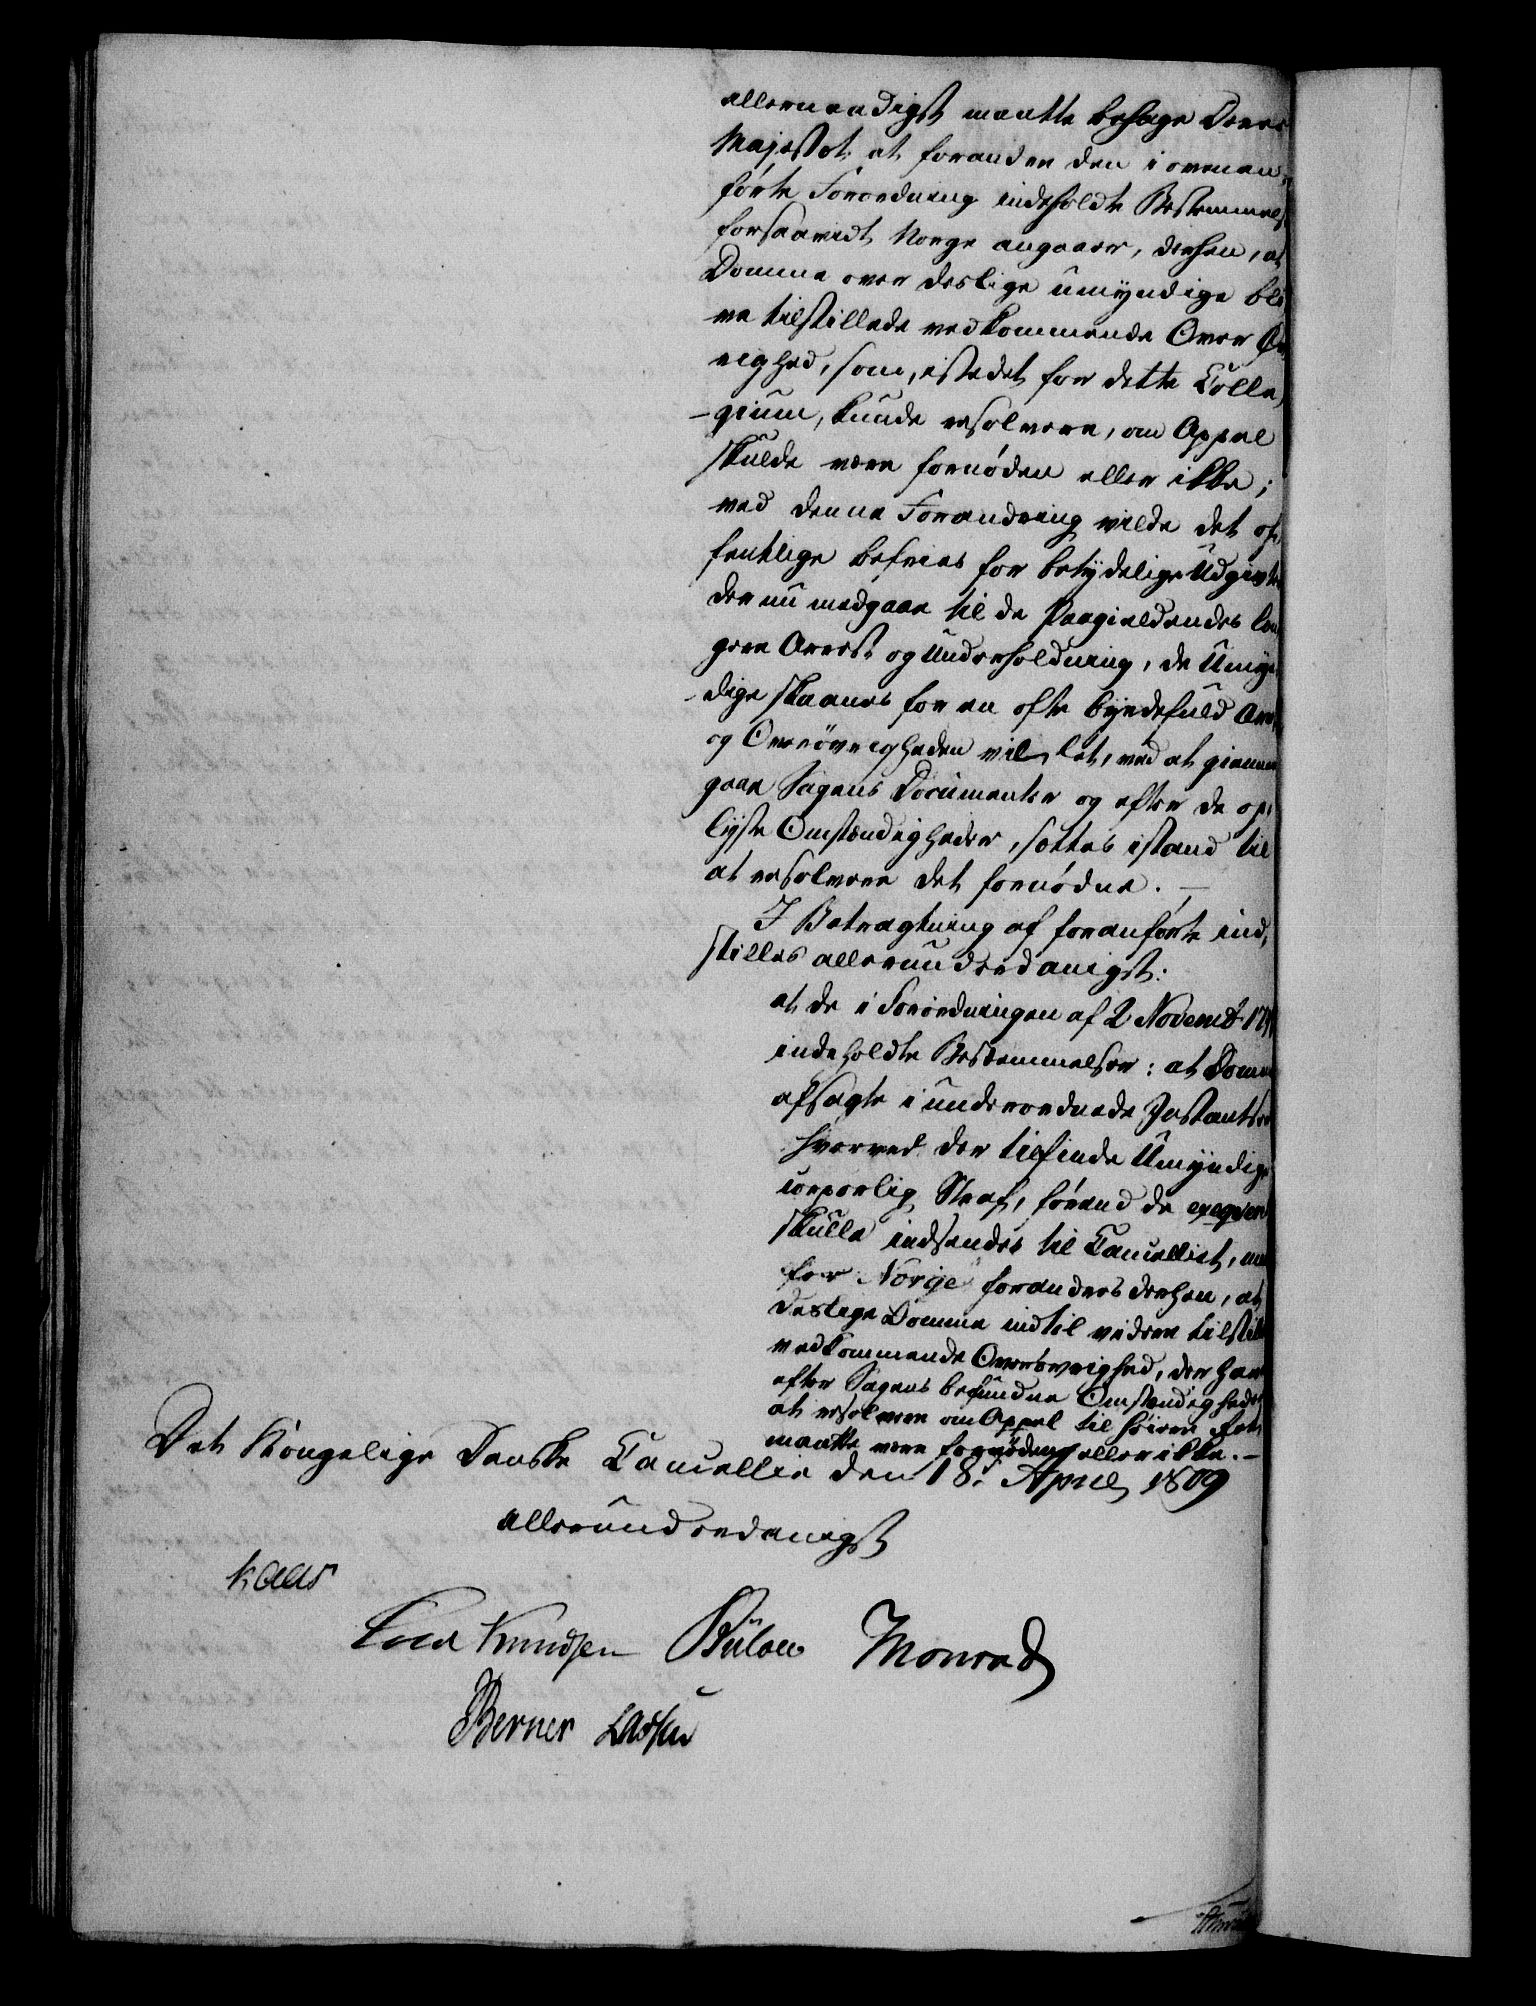 allernaadigst maatte behage Deres
Majestet at forandre den i ovenan-
førte Forordning indeholdte Bestemmelse
forsaavidt Norge angaaer, derhen, at
Domme over deslige umyndige bli
ve tilstillede vedkommende Over Øv
righed, som, istedet for dette Colle
-gium, kunde resolvere, om Appel
skulde være fornøden eller ikke;
ved denne Forandring vilde det of
fentlige befries for betydelige Udgivter
der nu medgaae til de Paagieldendes læn
gere Arrest og Underholdning, de Umyn
dige skaanes for en ofte byrdefuld Arr
og Overøvrigheden vil let, ved at giennem
gaae Sagens Documenter og efter de op-
lyste Omstændigheder, sættes istand til
at resolvere det fornødne. —
I Betragtning af foranførte ind-
stilles allerunderdanigst:
at de i Forordningen af 2 Novembr 17
indeholdte Bestemmelser: at Domme
afsagte i underordnede Instantser
hvorved der tilfinde Umyndige
corporlig Straf, førend de exeqveres
skulle indsendes til Cancelliet, maa
for Norge forandres derhen, at
deslige Domme indtil videre tilstilles
vedkommende Overøvrighed, der har
efter Sagens befundne Omstændigheder
at resolvere om Appel til høiere Ret
maatte være fornøden eller ikke. —
Det Kongelige Danske Cancellie den 18. April 1809
allerunderdanigst
Kaas
Knudsen Bülow Monrad
Berner Lassen